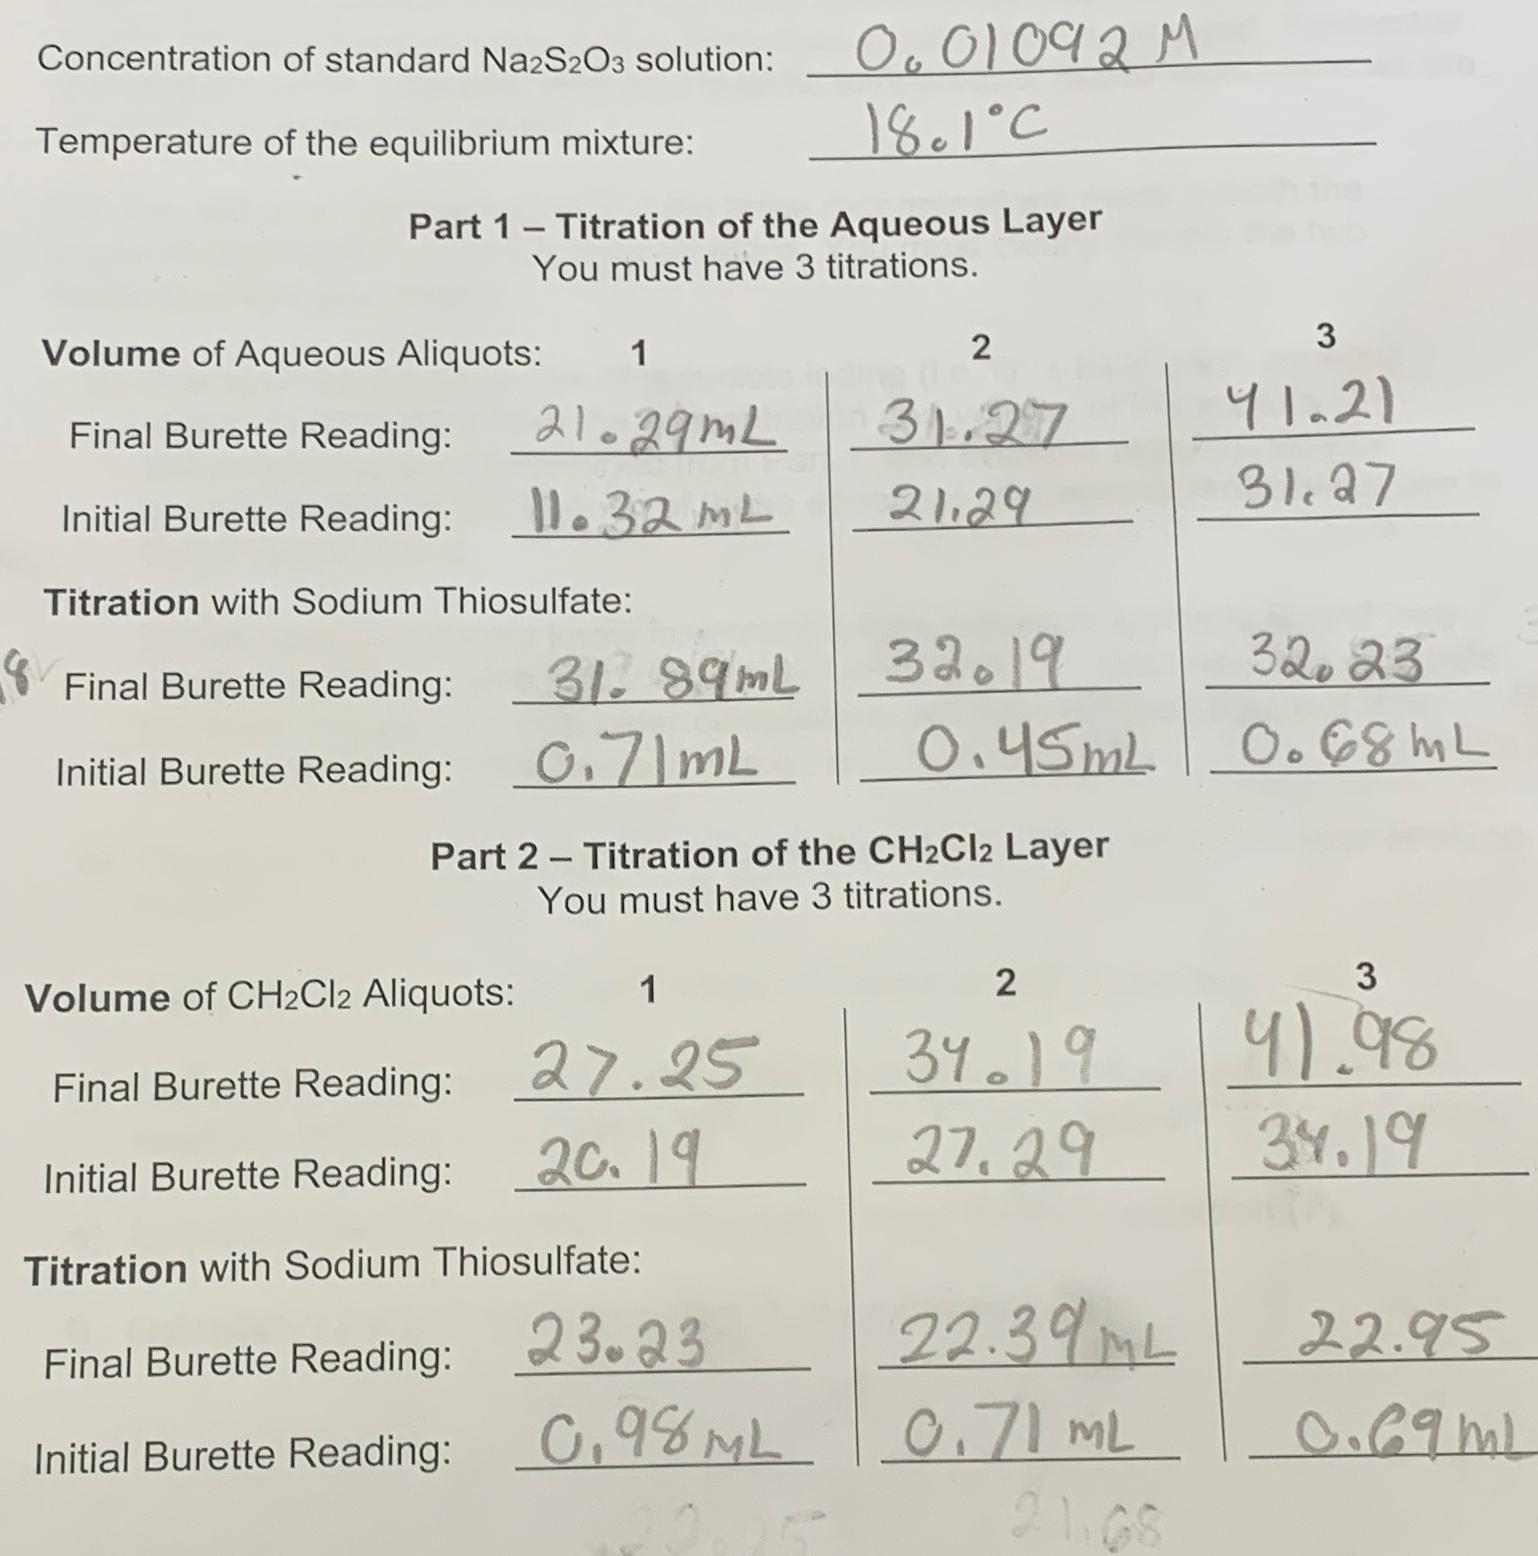 Concentration of standard Na2S2O3 solution: 0.01092 M
Temperature of the equilibrium mixture: 18.1°C
Part 1 – Titration of the Aqueous Layer
You must have 3 titrations.
Volume of Aqueous Aliquots: 1 2 3
Final Burette Reading: 21.29mL 31.27 41.21
Initial Burette Reading: 11.32 mL 21.29 31.27
Titration with Sodium Thiosulfate:
Final Burette Reading: 31.89mL 32.19 32.23
Initial Burette Reading: 0.71mL 0.45mL 0.68mL
Part 2 – Titration of the CH2Cl2 Layer
You must have 3 titrations.
Volume of CH2Cl2 Aliquots: 1 2 3
Final Burette Reading: 27.25 34.19 41.98
Initial Burette Reading: 20.19 27.29 34.19
Titration with Sodium Thiosulfate:
Final Burette Reading: 23.23 22.39 mL 22.95
Initial Burette Reading: 0.98 mL 0.71 mL 0.69mL
21.68